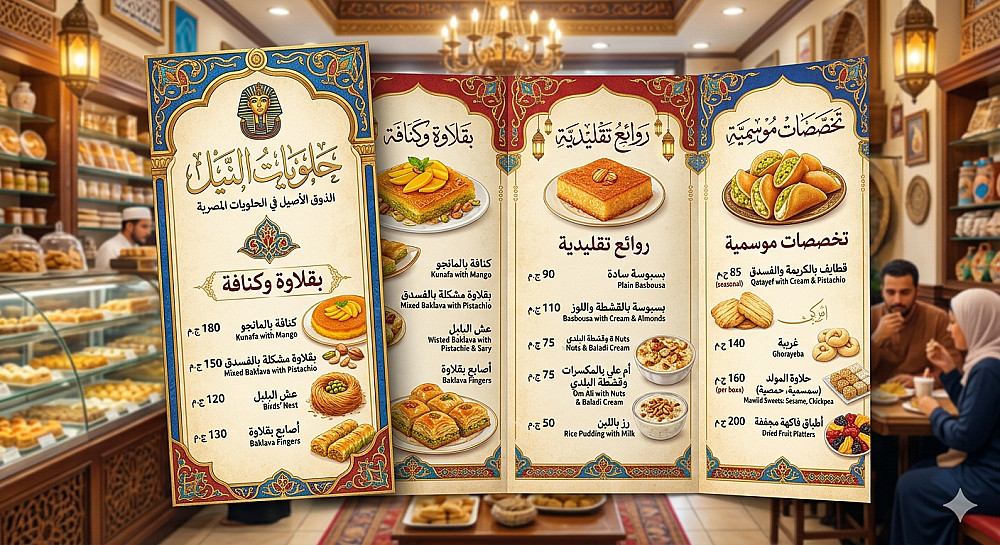 حلويات النيل
الذوق الأصيل في الحلويات المصرية
بقلاوة وكنافة
كنافة بالمانجو 180 ج.م
Kunafa with Mango
بقلاوة مشكلة بالفسدق 150 ج.م
Mixed Baklava with Pistachio
عش البلبل 120 ج.م
Birds' Nest
أصابع بقلاوة 130 ج.م
Baklava Fingers
بقلاوة وكنافة
كنافة بالمانجو
Kunafa with Mango
بقلاوة مشكلة بالفسدق
Mixed Baklava with Pistachio
عش البلبل
Wisted Baklava with
Pistachie & Sary
أصابع بقلاوة
Baklava Fingers
روائع تقليديّة
روائع تقليدية
بسبوسة سادة 90 ج.م
Plain Basbousa
بسبوسة بالقشطة واللوز 110 ج.م
Basbousa with Cream & Almonds
Nuts وقشطة البلدي 75 ج.م
Nuts & Baladi Cream
أم علي بالمكسرات 75 ج.م
وقشطة البلدي
Om Ali with Nuts
& Baladi Cream
رز باللبن 50 ج.م
Rice Pudding with Milk
تخصصات موسميّة
تخصصات موسمية
قطايف بالكريمة والفسدق 85 ج.م
Qatayef with Cream & Pistachio (seasonal)
غريبة 140 ج.م
Ghorayeba
حلاوة المولد 160 ج.م
(سمسمية، حمصية) (per boxx)
Mawlid Sweets: Sesame, Chickpea
أطباق فاكهة مجففة 200 ج.م
Dried Fruit Platters